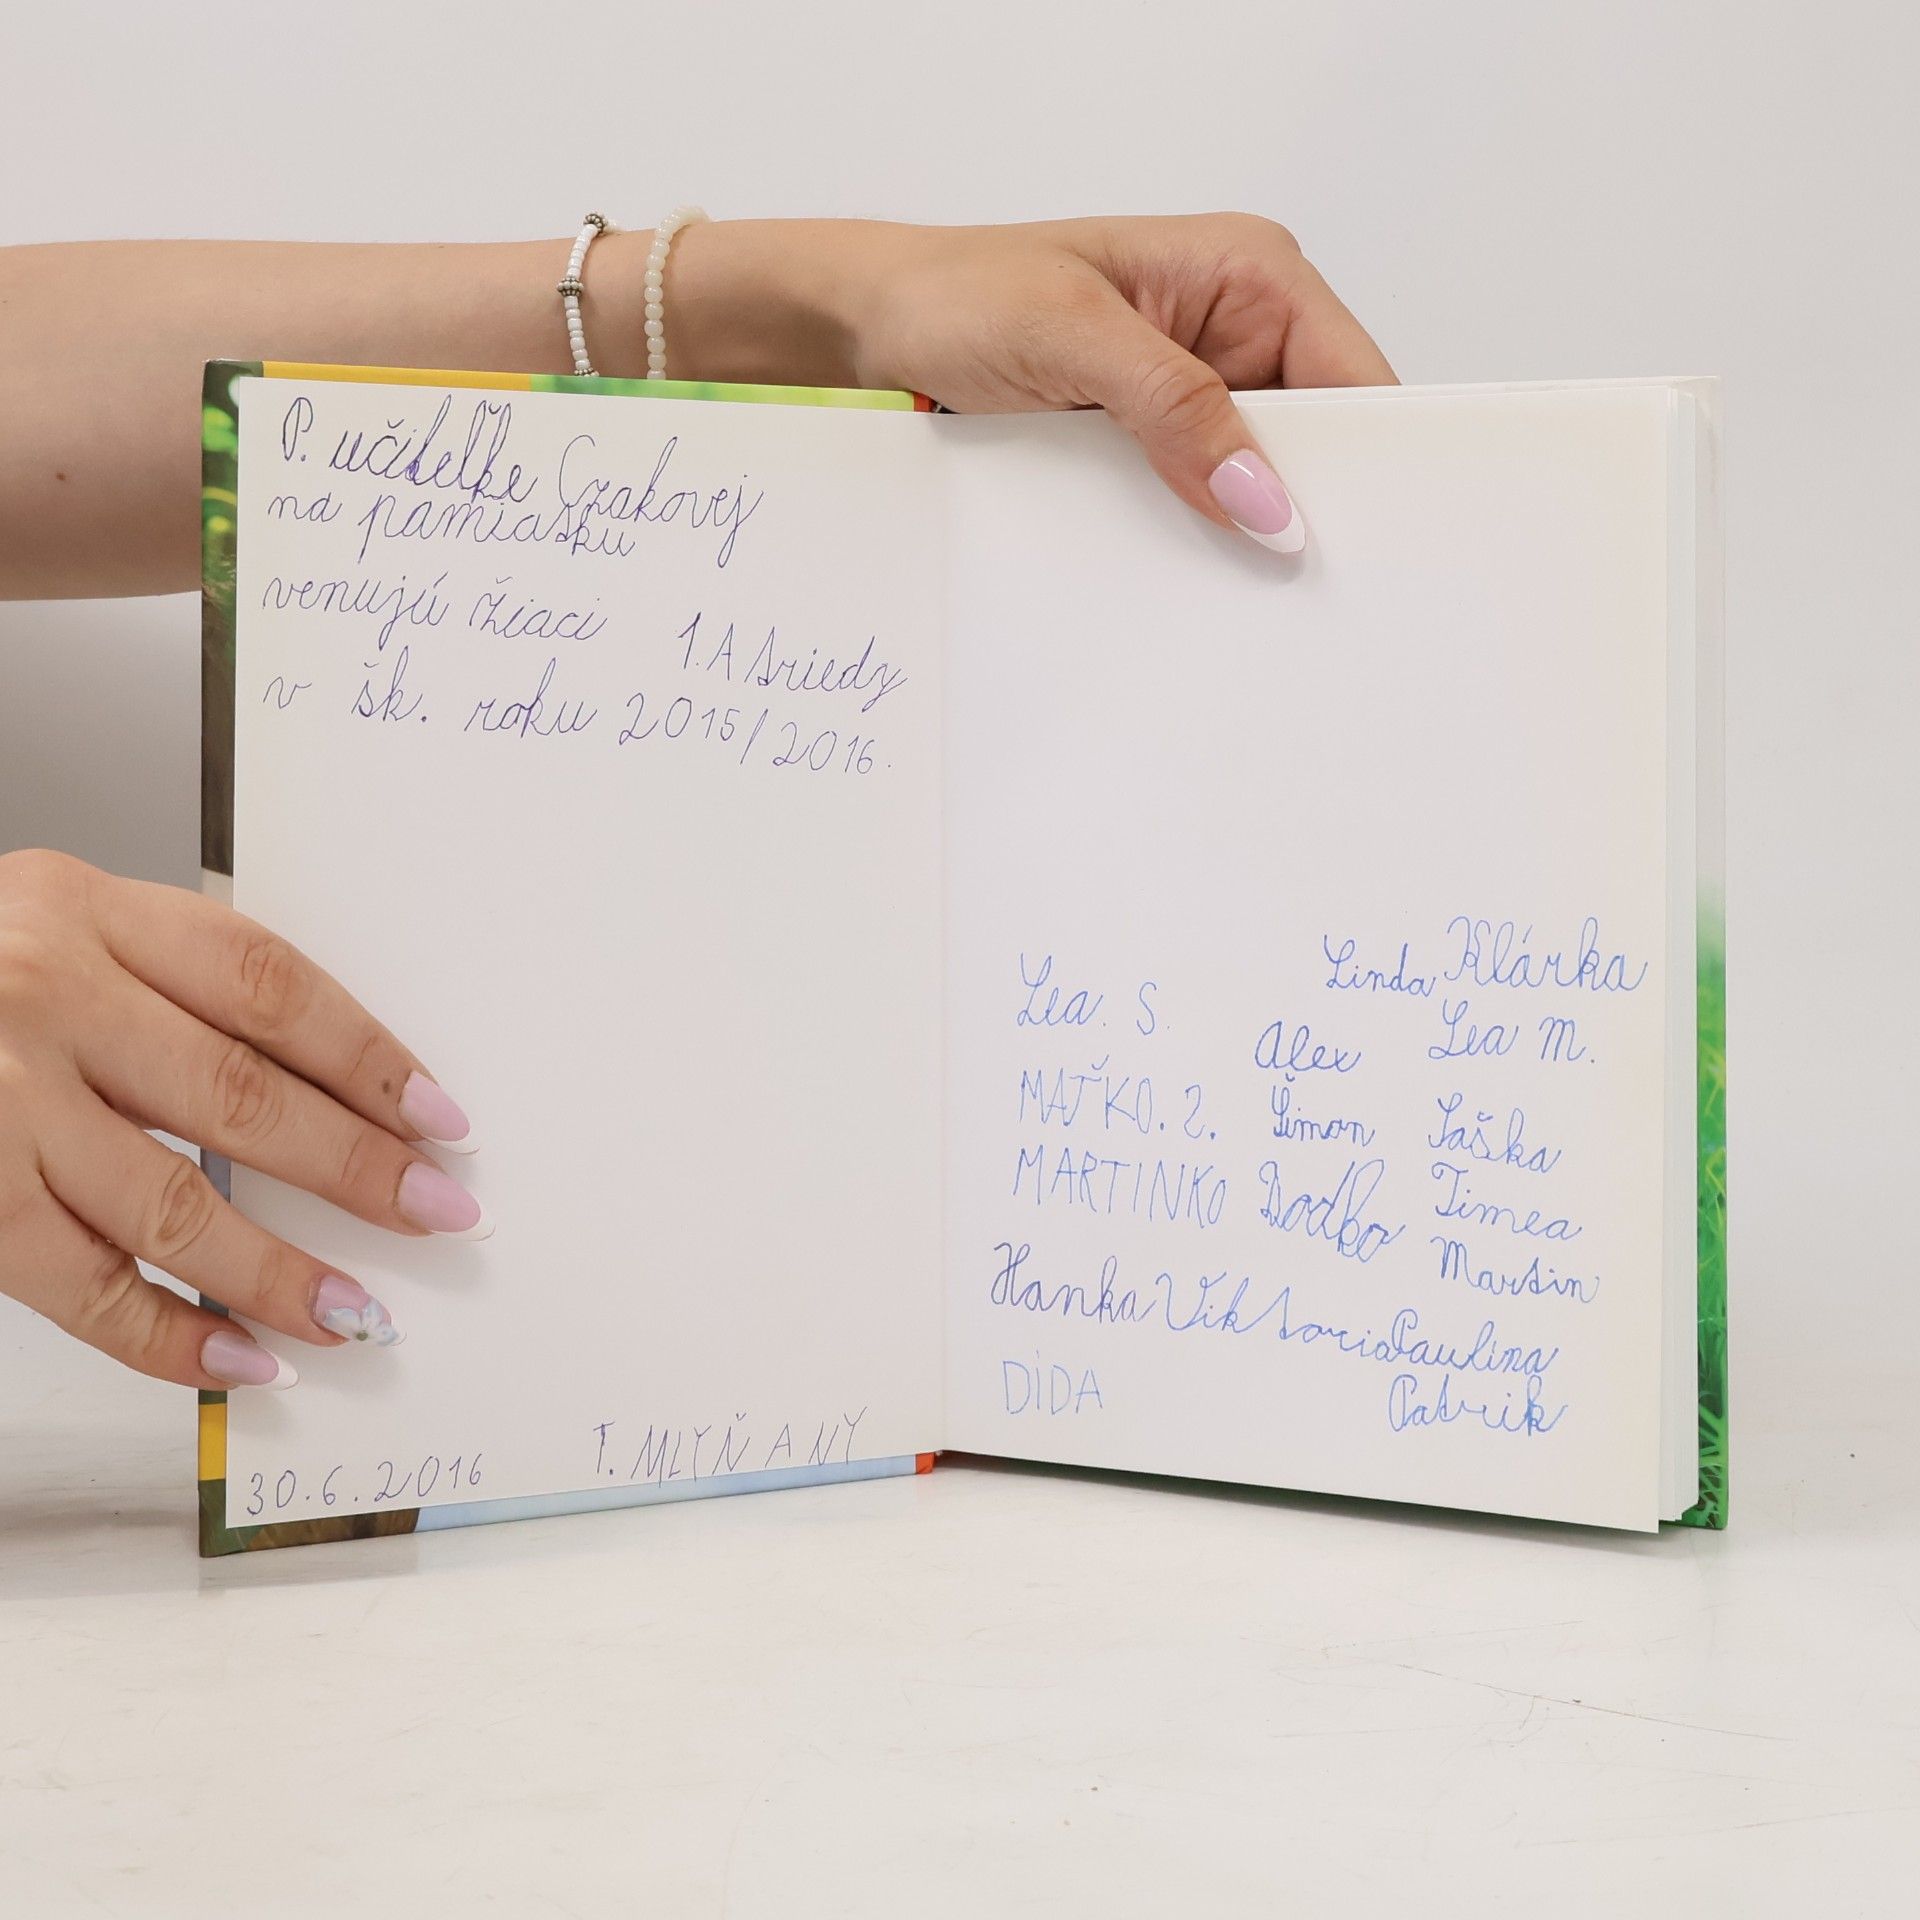 P. učiteľke Czakovej
na pamiatku
venujú žiaci 1.A triedy
v šk. roku 2015/2016.
30.6.2016 T. MLYŇANY
Linda Klárka
Lea. S. Alex Lea M.
MAŤKO. Z. Šimon Saška
MARTINKO Timea
Martin
Hanka Viktoria Paulína
DIDA Patrik